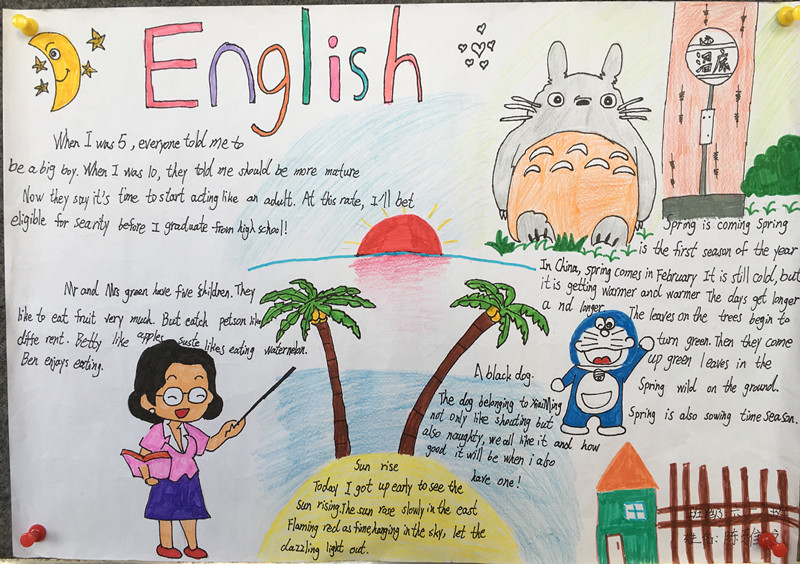 English
When I was 5, everyone told me to
be a big boy. When I was 10, they told me should be more mature
Now they say it's time to start acting like an adult. At this rate, I'll bet
eligible for searity before I graduate from high school!
Mr and Mrs green have five children. They
like to eat fruit very much. But eatch petson like
diffe rent. Betty like apples suste likes eating waternelon.
Ben enjoys eating.
Sun rise
Today I got up early to see the
sun rising. The sun rose slowly in the east
Flaming red as fime, hanging in the sky, let the
dazzling light out.
A black dog.
The dog belonging to XiaoMing
not only like shouting but
also naughty, we all like it and how
good it will be when i also
have one!
Spring is coming Spring
is the first season of the year
In China, spring comes in February It is still cold, but
it is getting warmer and warmer The days get longer
a nd longer.
The leaves on the trees begin to
turn green. Then they come
up green leaves in the
Spring wild on the ground.
Spring is also sowing time season.